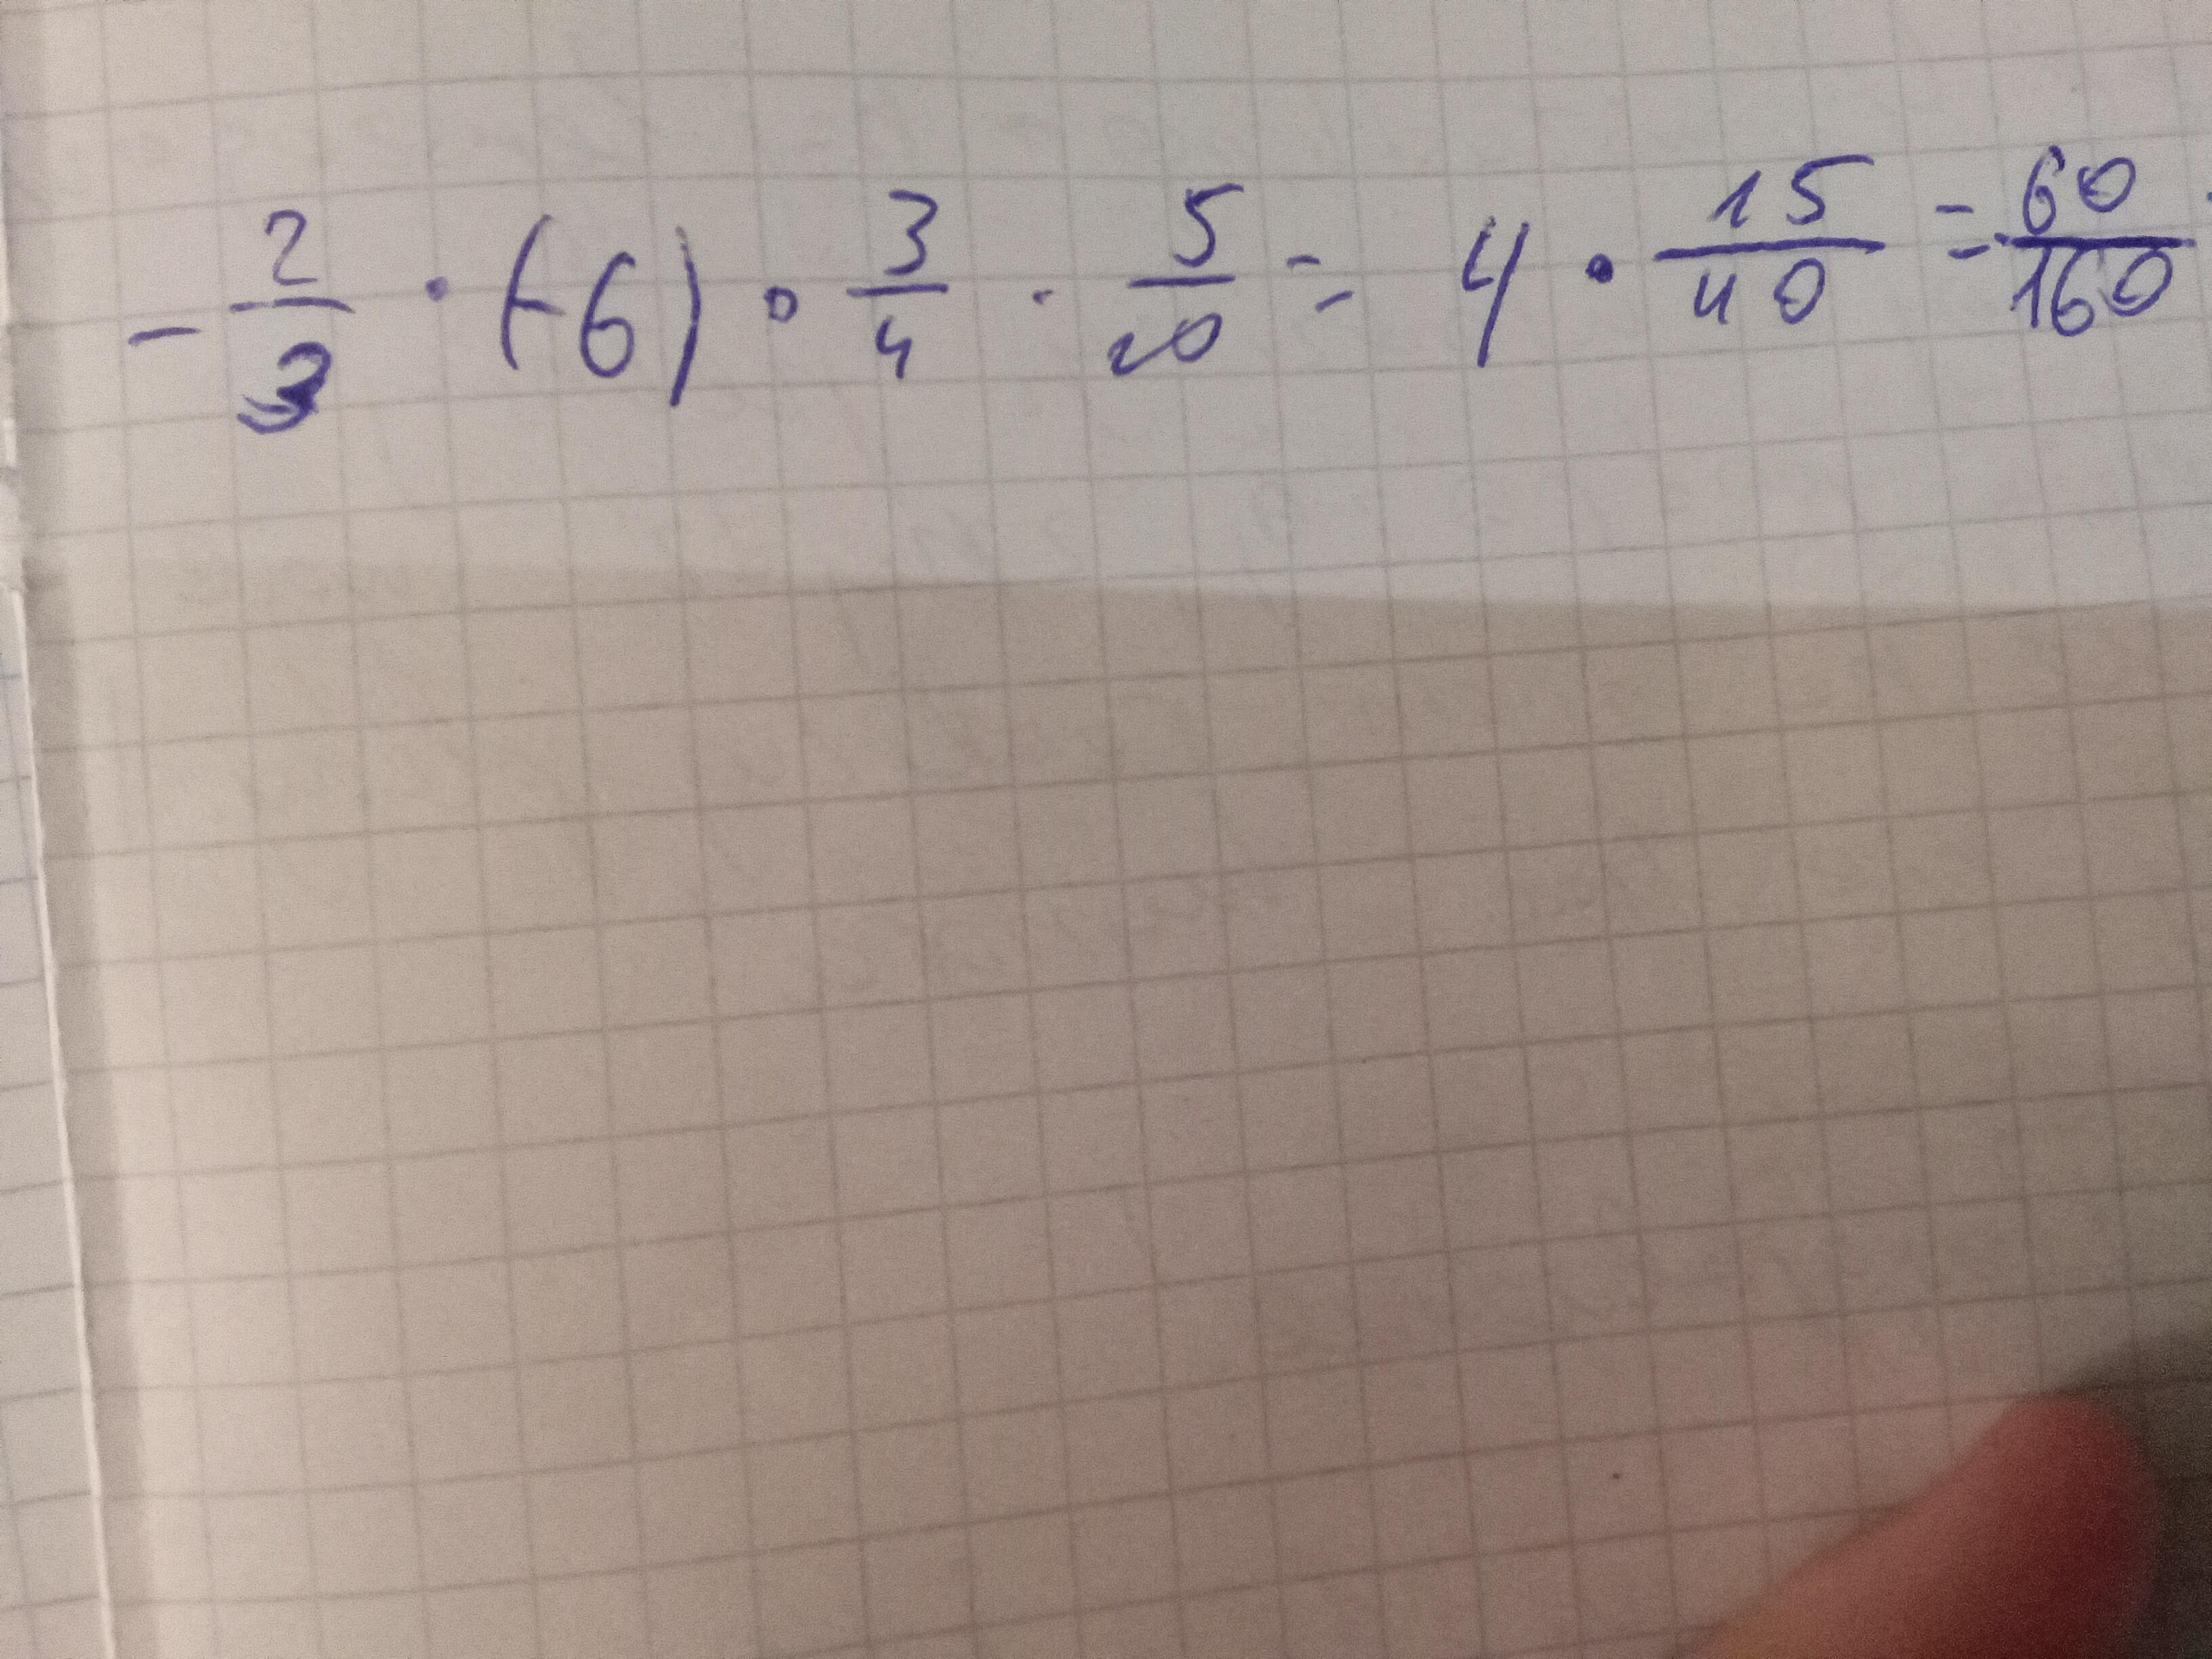 -2/3 · (-6) · 3/4 · 5/10 = 4 · 15/40 = 60/160